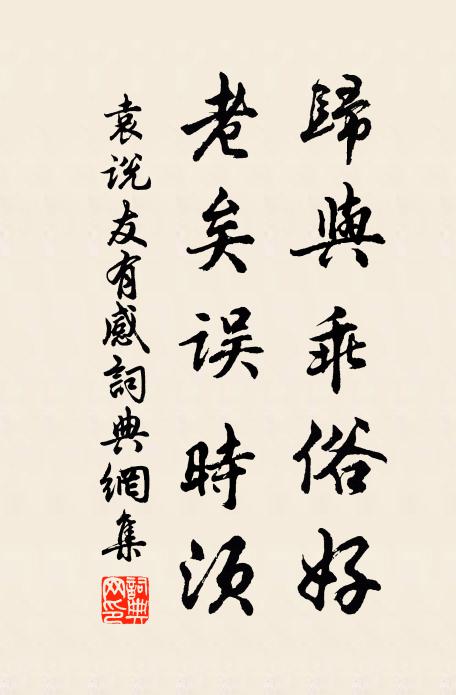 歸與乖俗好
老矣误時須
袁说友有感詞典網集
詞典網印